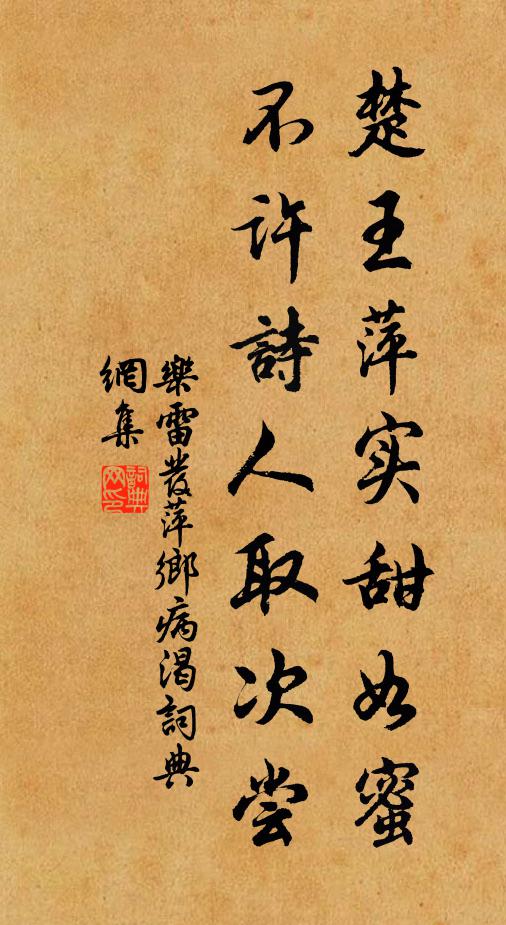 楚王萍实甜如蜜
不许詩人取次尝
樂雷發萍鄉病渴詞典
網集
詞典
网印